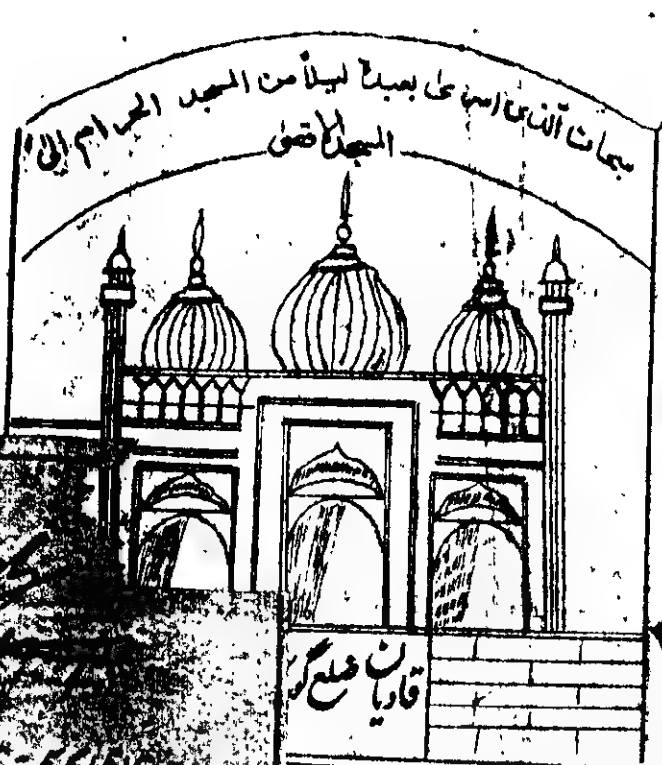 سبحان الذی اسریٰ بعبدہٖ لیلاً من المسجد الحرام الی
المسجد الاقصٰی
قادیان ضلع گور